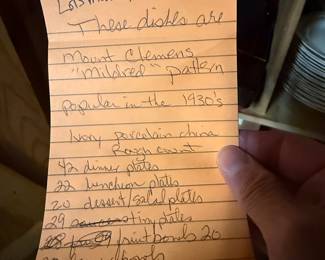 These dishes are
Mount Clemens
"Mildred" pattern
popular in the 1930's
Ivory porcelain china
Rough count
42 dinner plates
22 luncheon plates
20 dessert/salad plates
29 tiny plates
fruit bowls 20
bowls